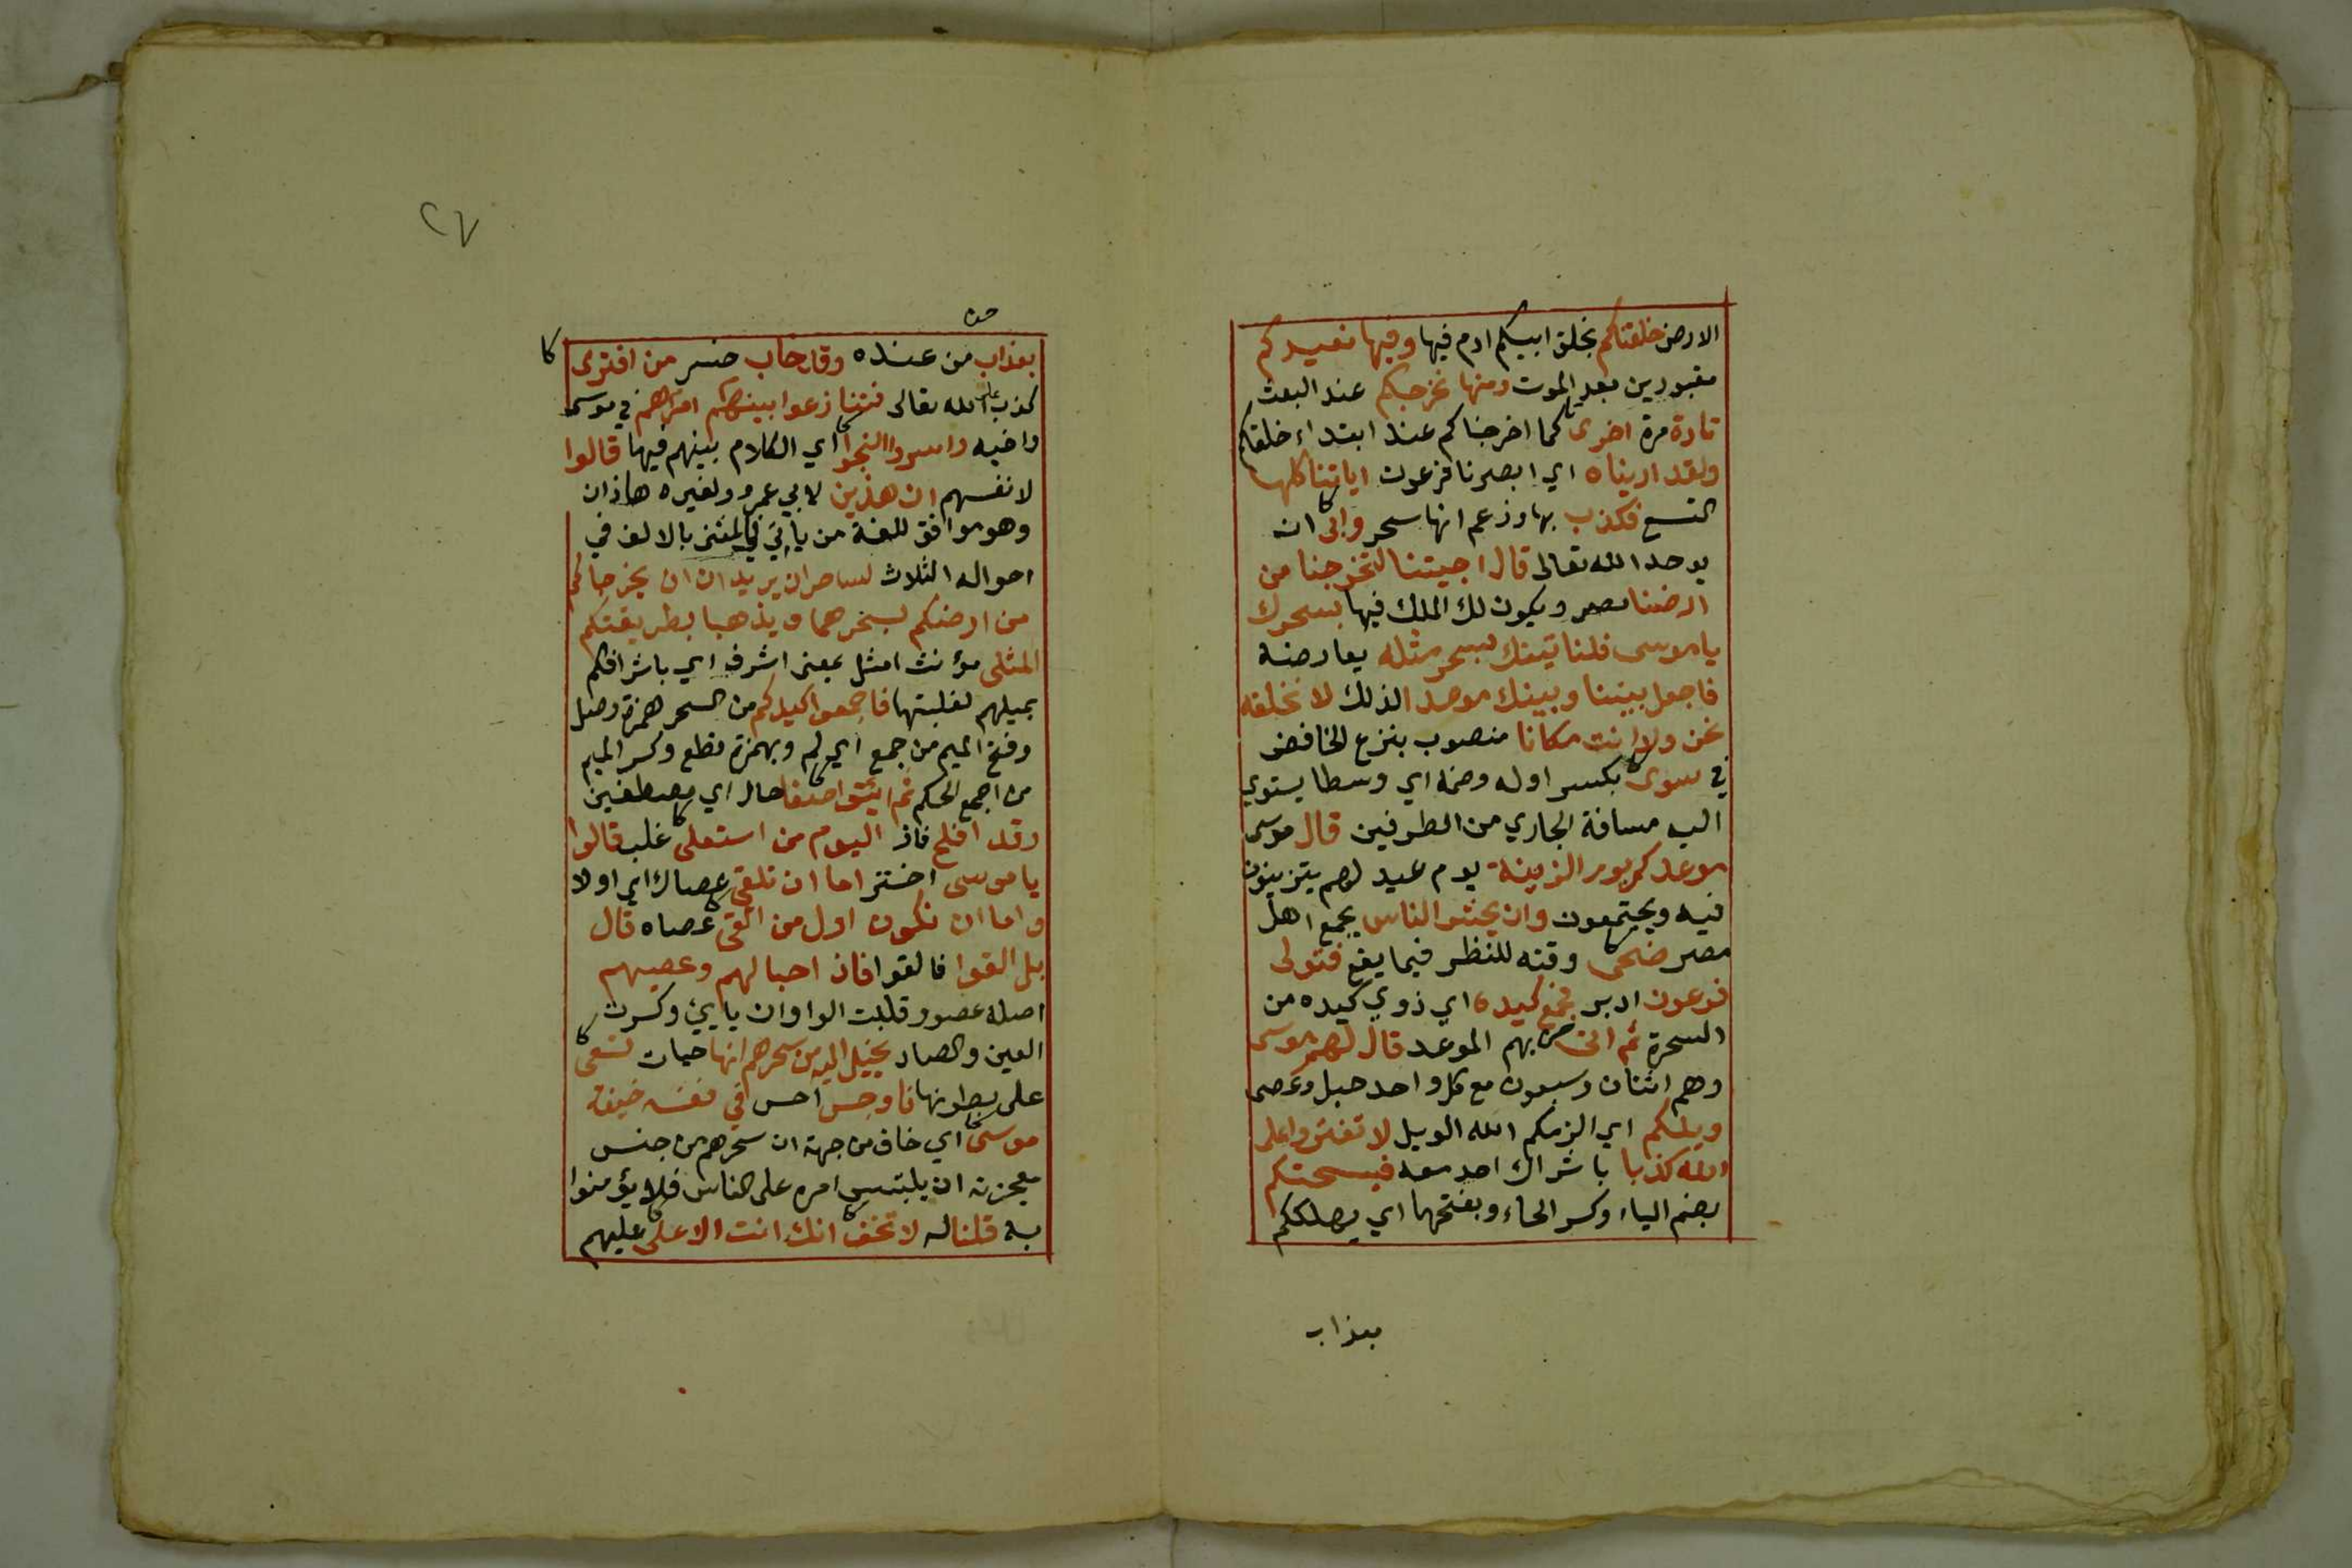 الارض خلقناكم بخلق ابيكم ادم فيها وفيها نعيدكم
مقبورين بعد الموت ومنها نخرجكم عند البعث
تارة مرة اخرى كما اخرجناكم عند ابتداء خلقكم
ولقد اريناه اي ابصرنا فرعون اياتنا كلها
التسع فكذب بها وزعم انها سحر وابى ان
يوحد الله تعالى قال اجيتنا لتخرجنا من
ارضنا مصر ويكون لك الملك فيها بسحرك
يا موسى فلناتينك بسحر مثله يعارضه
فاجعل بيننا وبينك موعدا لذلك لا نخلفه
نحن ولا انت مكانا منصوب بنزع الخافض
في سوى بكسر اوله وضمه اي وسطا يستوي
اليه مسافة الجاري من الطرفين قال موسى
موعدكم يوم الزينة يوم عيد لهم يتزينون
فيه ويجتمعون وان يحشر الناس يجمع اهل
مصر ضحى وقته للنظر فيما يقع فتولى
فرعون ادبر فجمع كيده اي ذوي كيده من
السحرة ثم اتى بهم الموعد قال لهم موسى
وهم اثنان وسبعون مع كل واحد حبل وعصى
ويلكم اي الزمكم الله الويل لا تفتروا على
الله كذبا باشراك احد معه فيسحتكم
بضم الياء وكسر الحاء وبفتحها اي يهلككم
بعذاب
٢٧
بعذاب من عنده وقد خاب خسر من افترى
كذب على الله تعالى فتنازعوا بينهم امرهم في موسى
واخيه واسروا النجوا اي الكلام بينهم فيها قالوا
لانفسهم ان هذين لابي عمرو ولغيره هاذان
وهو موافق للغة من ياتي في المثنى بالالف في
احواله الثلاث لساحران يريدان ان يخرجاكم
من ارضكم بسحرهما ويذهبا بطريقتكم
المثلى مؤنث امثل بمعنى اشرف اي باشرافكم
بميلهم لغلبتها فاجمعوا كيدكم من السحر همزة وصل
وفتح الميم من جمع اي لم وبهمزة قطع وكسر الميم
من اجمع احكم ثم ائتوا صفا حال اي مصطفين
وقد افلح فاز اليوم من استعلى غلب قالوا
يا موسى اختر اما ان تلقي عصاك اي اولا
واما ان نكون اول من القى عصاه قال
بل القوا فالقوا فاذا حبالهم وعصيهم
اصله عصوو قلبت الواوان يايئ وكسرت
العين والصاد يخيل اليه من سحرهم انها حيات تسعى
على بطونها فاوجس احس في نفسه خيفة
موسى اي خاف من جهة ان سحرهم من جنس
معجزته ان يلتبس امره على الناس فلا يؤمنوا
به قلنا له لا تخف انك انت الاعلى عليهم